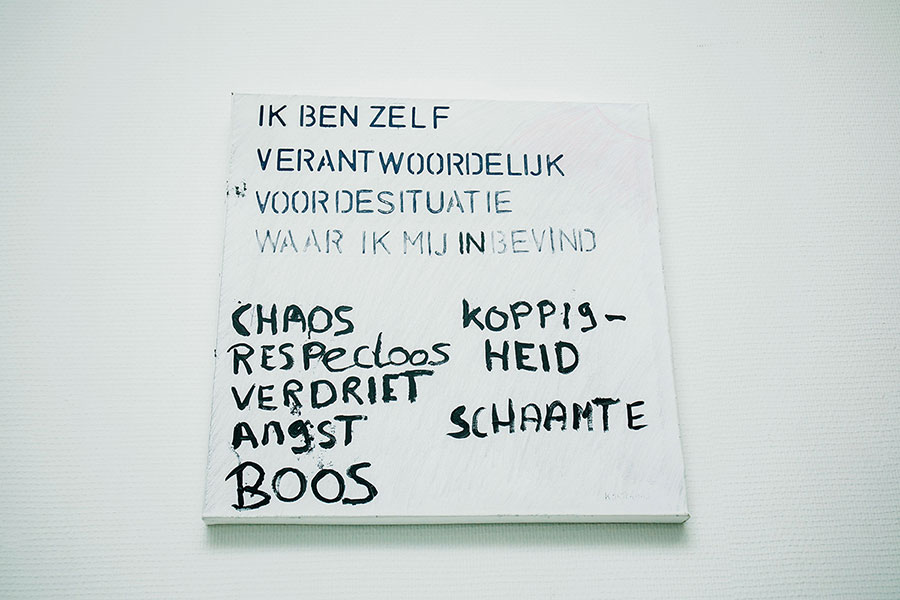 IK BEN ZELF
VERANTWOORDELIJK
VOOR DE SITUATIE
WAAR IK MIJ IN BEVIND
CHAOS
RESPecloos
VERDRIET
AngST
BOOS
KOPPIg-
HEID
SCHAAMTE